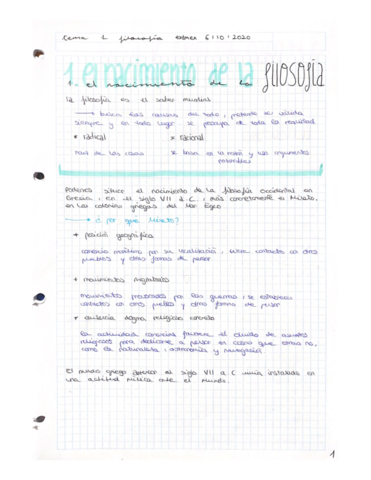 tema 1 filosofía examen 6·10·2020
1. el nacimiento de la filosofía
1. el nacimiento de la
la filosofía es el saber mundial
→ busca las razones del todo, pretende ser válida
siempre y en todo lugar se preocupa de toda la realidad
* radical * racional
raíz de las cosas se basa en la razón y sus argumentos
Podemos situar el nacimiento de la filosofía occidental en
Grecia, en el siglo VII a.C., más concretamente en Mileto,
en las colonias griegas del Mar Egeo
→ ¿por qué Mileto?
+ posición geográfica
comercio marítimo por su localización, tener contactos con otros
pueblos y otras formas de pensar
+ movimientos migratorios
movimientos provocados por las guerras, se establecen
contactos con otros pueblos y otras formas de pensar
+ ausencia dogma religioso concreto
la actividad comercial favorece el olvido de asuntos
religiosos para dedicarse a pensar en cosas que
como la naturaleza, astronomía y navegación
El mundo griego anterior al siglo VII a.C vivía instalado en
una actitud mítica ante el mundo.
1